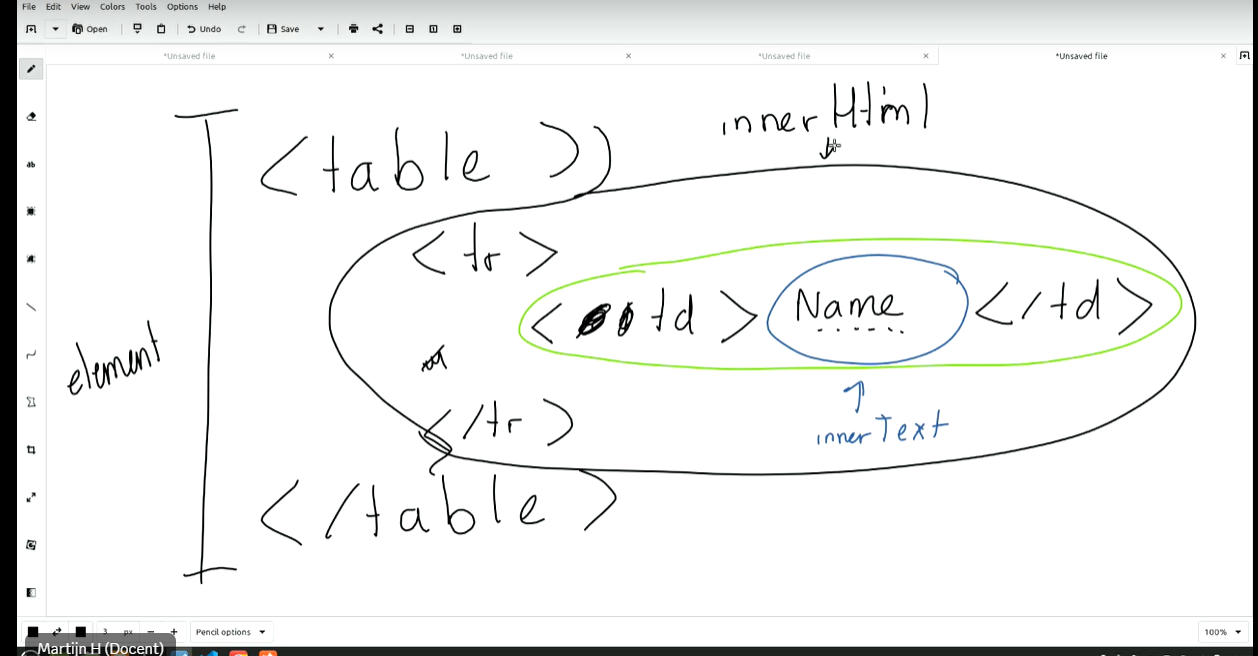 File Edit View Colors Tools Options Help
Open Undo Save
*Unsaved file *Unsaved file *Unsaved file *Unsaved file
innerHtml
<table >)
<tr>
< td > Name </td>
element
</tr>
innerText
</table>
3 px Pencil options 100%
Martijn H (Docent)